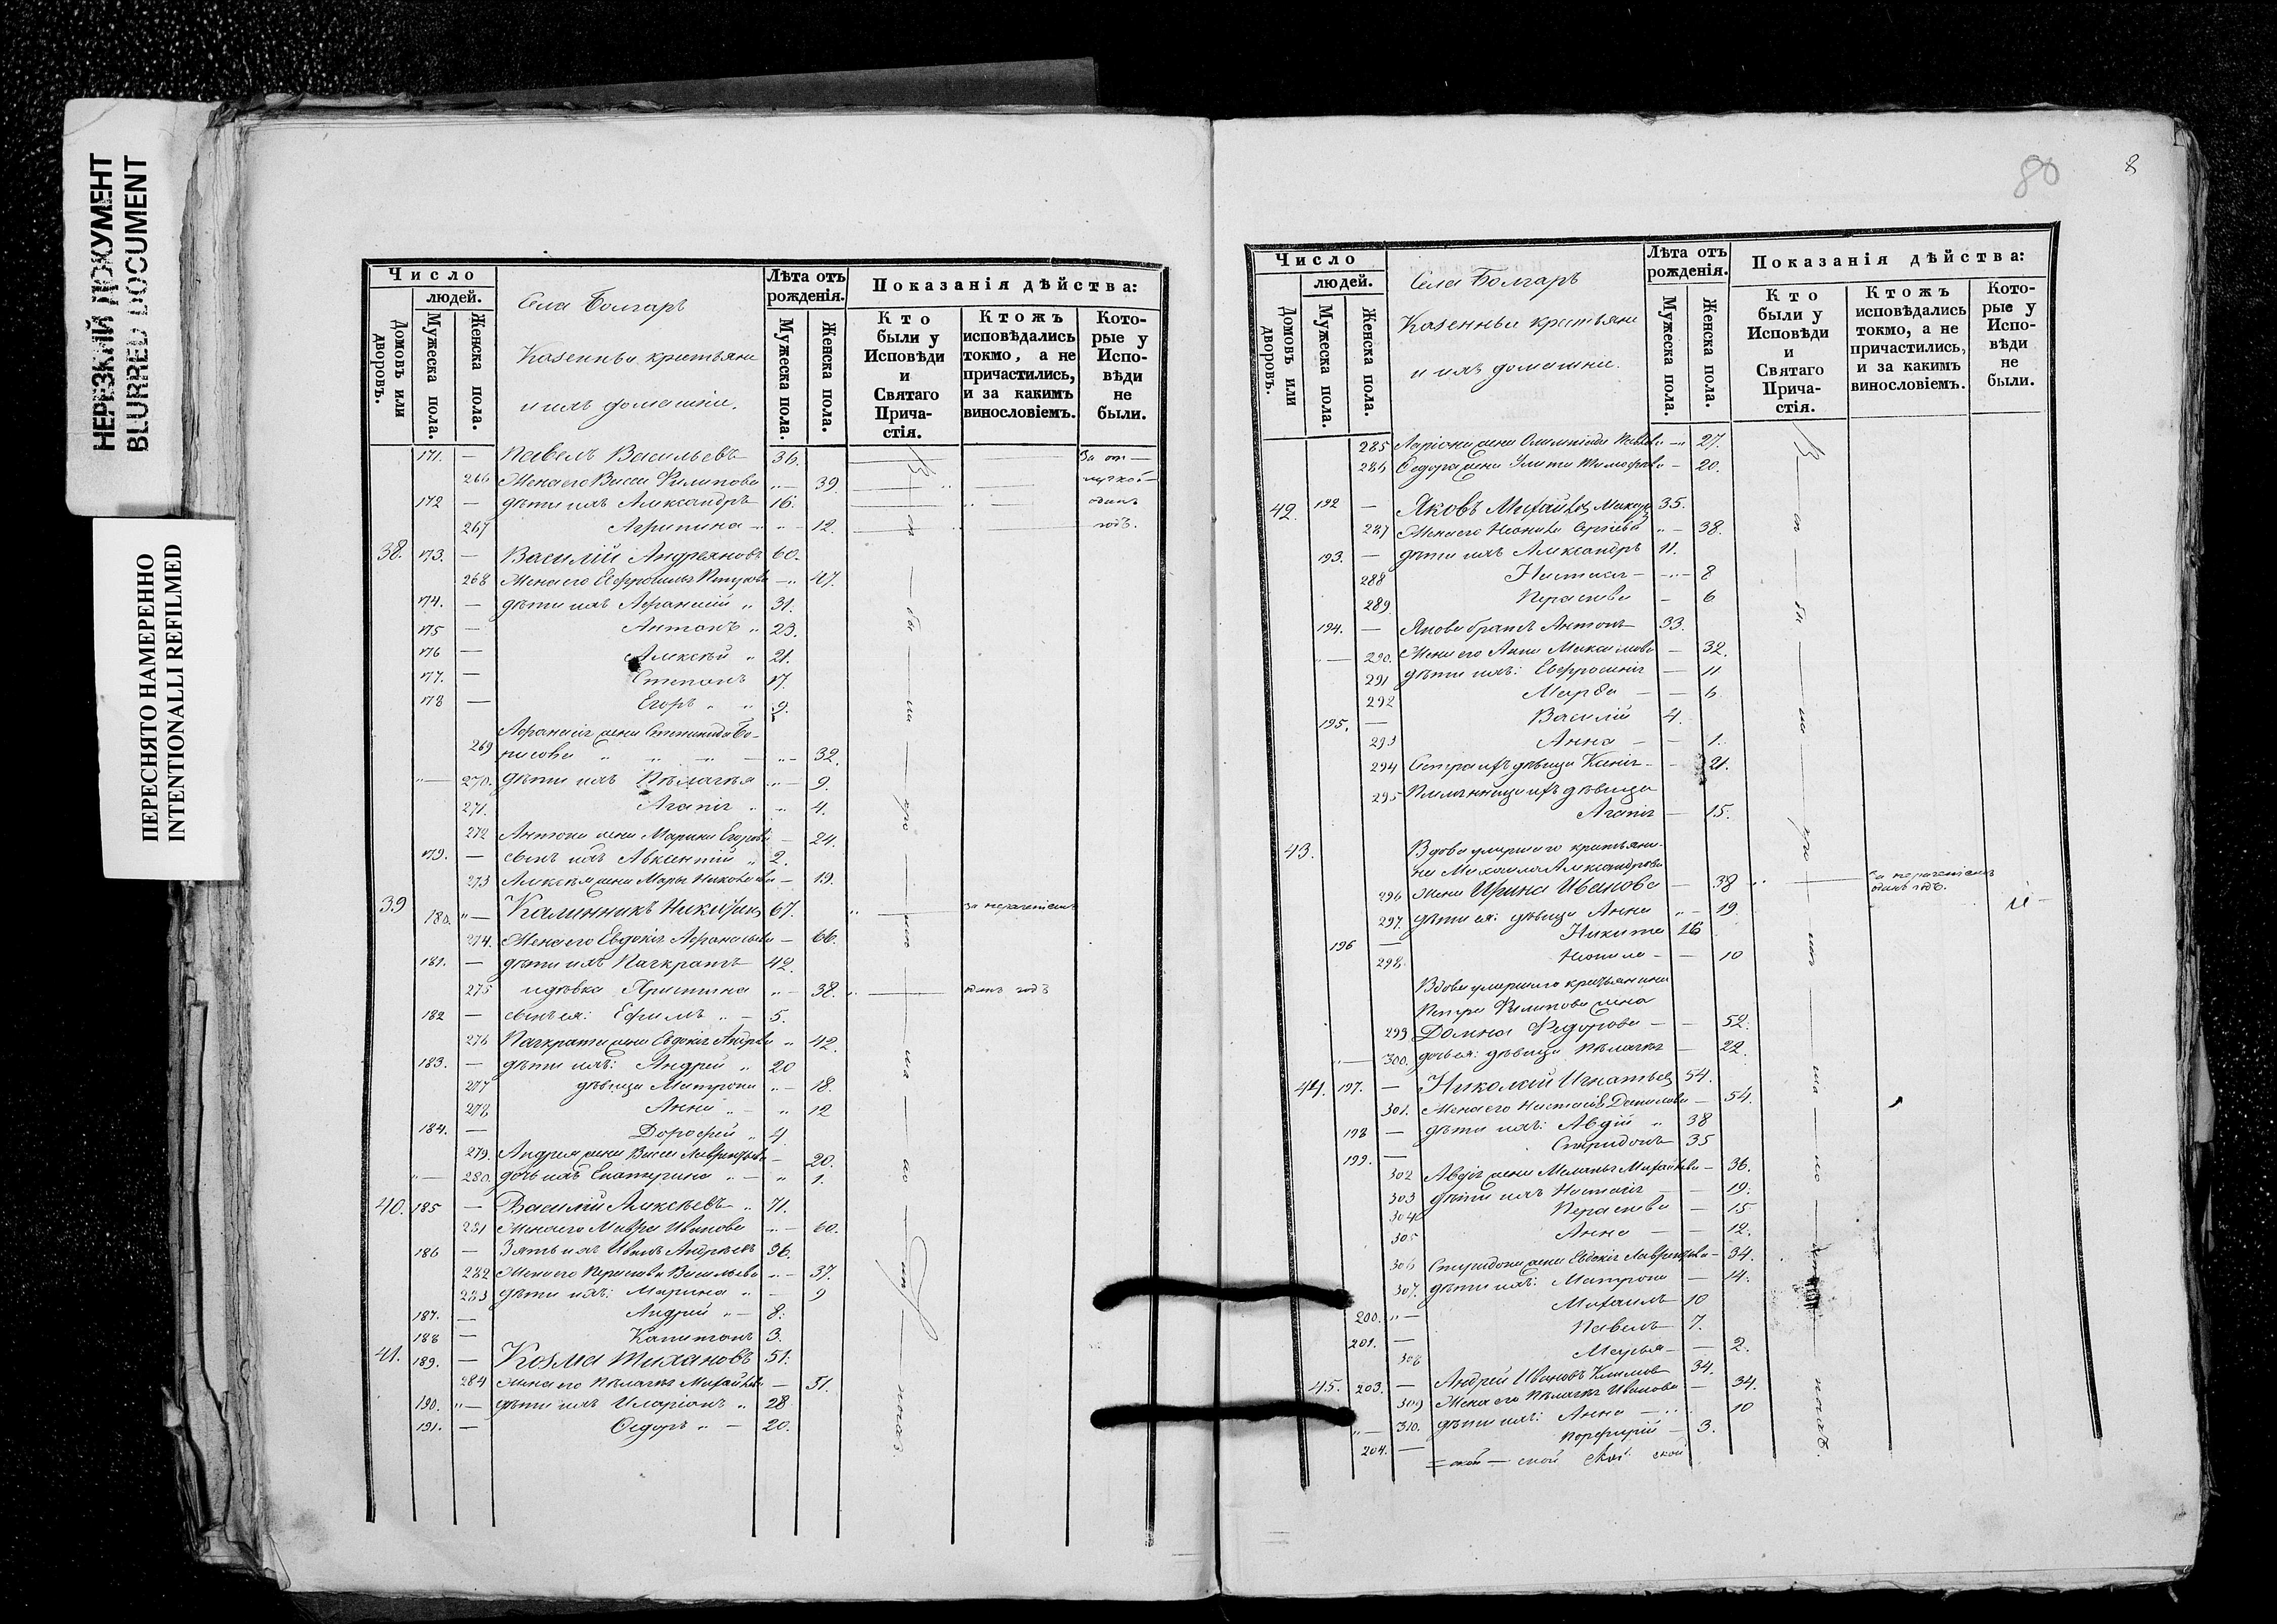 НЕРЕЗКИЙ ДОКУМЕНТ
BLURRED DOCUMENT
ПЕРЕСНЯТО НАМЕРЕННО
INTENTIONALLI REFILMED
Число
людей.
Домовъ или дворовъ.
Мужеска пола.
Женска пола.
Села Болгаръ
Казенныи крестьяне
и ихъ домашніи.
Лѣта отъ рожденія.
Мужеска пола.
Женска пола.
Показанія дѣйства:
Кто были у Исповѣди и Святаго Причастія.
Ктожъ исповѣдались токмо, а не причастились, и за какимъ винословіемъ.
Которые у Исповѣди не были.
171. — Павелъ Васильевъ 36. За от-
266 Жена его Васса Филипова 39. лучкой
172 — дѣти ихъ Александръ 16. одинъ
267 Агрипина 12. годъ.
38. 173. — Василій Андреяновъ 60.
268 Жена его Ефросинья 47.
174. — дѣти ихъ Афанасій 31.
175 — Антонъ 23.
176 — Алексѣй 21.
177. — Степанъ 17.
178 — Егоръ 9.
Афанасія жена Степанида Бо-
269 рисова 32.
270. дѣти ихъ Пелагея 9.
271. Агапія 4.
272 Антона жена Марина Егорова 24.
179. — сынъ ихъ Авксентій 2.
273 Алексѣя жена Марья Николаева 19.
39 180. — Калинникъ Никифоровъ 67. за нераченіемъ
274. Жена его Евдокія Афанасьева 66.
181. — дѣти ихъ Панкратъ 42.
275 и дѣвка Христина 38. одинъ годъ
182 — сынъ ея: Ефимъ 5.
276 Панкрата жена Евдокія Андреева 42.
183. — дѣти ихъ: Андрей 20
277 дѣвица Матрона 18.
278 Анна 12
184. — Дорофей 4.
279. Андрея жена Васса Лаврентьева 20.
280. дочь ихъ Екатерина 1.
40. 185 — Василій Алексѣевъ 71.
281 Жена его Мавра Иванова 60.
186 — Зять ихъ Иванъ Андреевъ 36.
282 Жена его Прасковья Васильева 37.
283 дѣти ихъ: Марина 9
187. — Андрей 8.
188 — Капитонъ 3.
41. 189. — Козма Тихановъ 51.
284 жена его Пелагея Михайлова 51.
190. — дѣти ихъ Иларіонъ 28
191. — Ѳедоръ 20.
80
8
Число
людей.
Домовъ или дворовъ.
Мужеска пола.
Женска пола.
Села Болгаръ
Казенныи крестьяне
и ихъ домашніи.
Лѣта отъ рожденія.
Мужеска пола.
Женска пола.
Показанія дѣйства:
Кто были у Исповѣди и Святаго Причастія.
Ктожъ исповѣдались токмо, а не причастились, и за какимъ винословіемъ.
Которые у Исповѣди не были.
285 Ларіона жена Олимпіада 27.
286 Ѳедора жена Улита Тимофеева 20.
42. 192 — Яковъ Михайловъ 35.
287 Жена его Неонила Сергѣева 38.
193. — дѣти ихъ Александръ 11.
288 Настасья 8
289. Прасковья 6
194. — Якова братъ Антонъ 33.
290. Жена его Анна Максимова 32.
291 дѣти ихъ: Евфросинія 11
292 Марѳа 6
195. — Василій 4.
293 Анна 1.
294 Сестра ихъ дѣвица Ксенія 21.
295 Племянница ихъ дѣвица
Агапія 15.
43. Вдова умершаго крестьяни-
на Михаила Александрова
296 жена Ирина Иванова 38 за нераченіемъ одинъ годъ.
297. дѣти ея: дѣвица Анна 19
196 — Никита 16
298. Неонила 10
Вдова умершаго крестьянина
Петра Филипова жена
299 Домна Федорова 52.
300. дочь ея: дѣвица Пелагея 22.
44. 197. — Николай Игнатьевъ 54.
301. Жена его Настасія Данилова 54.
198 — дѣти ихъ: Авдій 38
199. — Спиридонъ 35
302 Авдія жена Меланья Михайлова 36.
303 дѣти ихъ Настасія 19.
304 Прасковья 15
305 Анна 12.
306 Спиридона жена Евдокія Лаврентьева 34.
307. дѣти ихъ: Матрона 14.
200. — Михаилъ 10
201. — Павелъ 7.
308 Марья 2.
45. 203. — Андрей Ивановъ Климовъ 34.
309 Жена его Пелагея Иванова 34.
310. дѣти ихъ: Анна 10
204. — Порфирій 3.
ской — ской ской ской